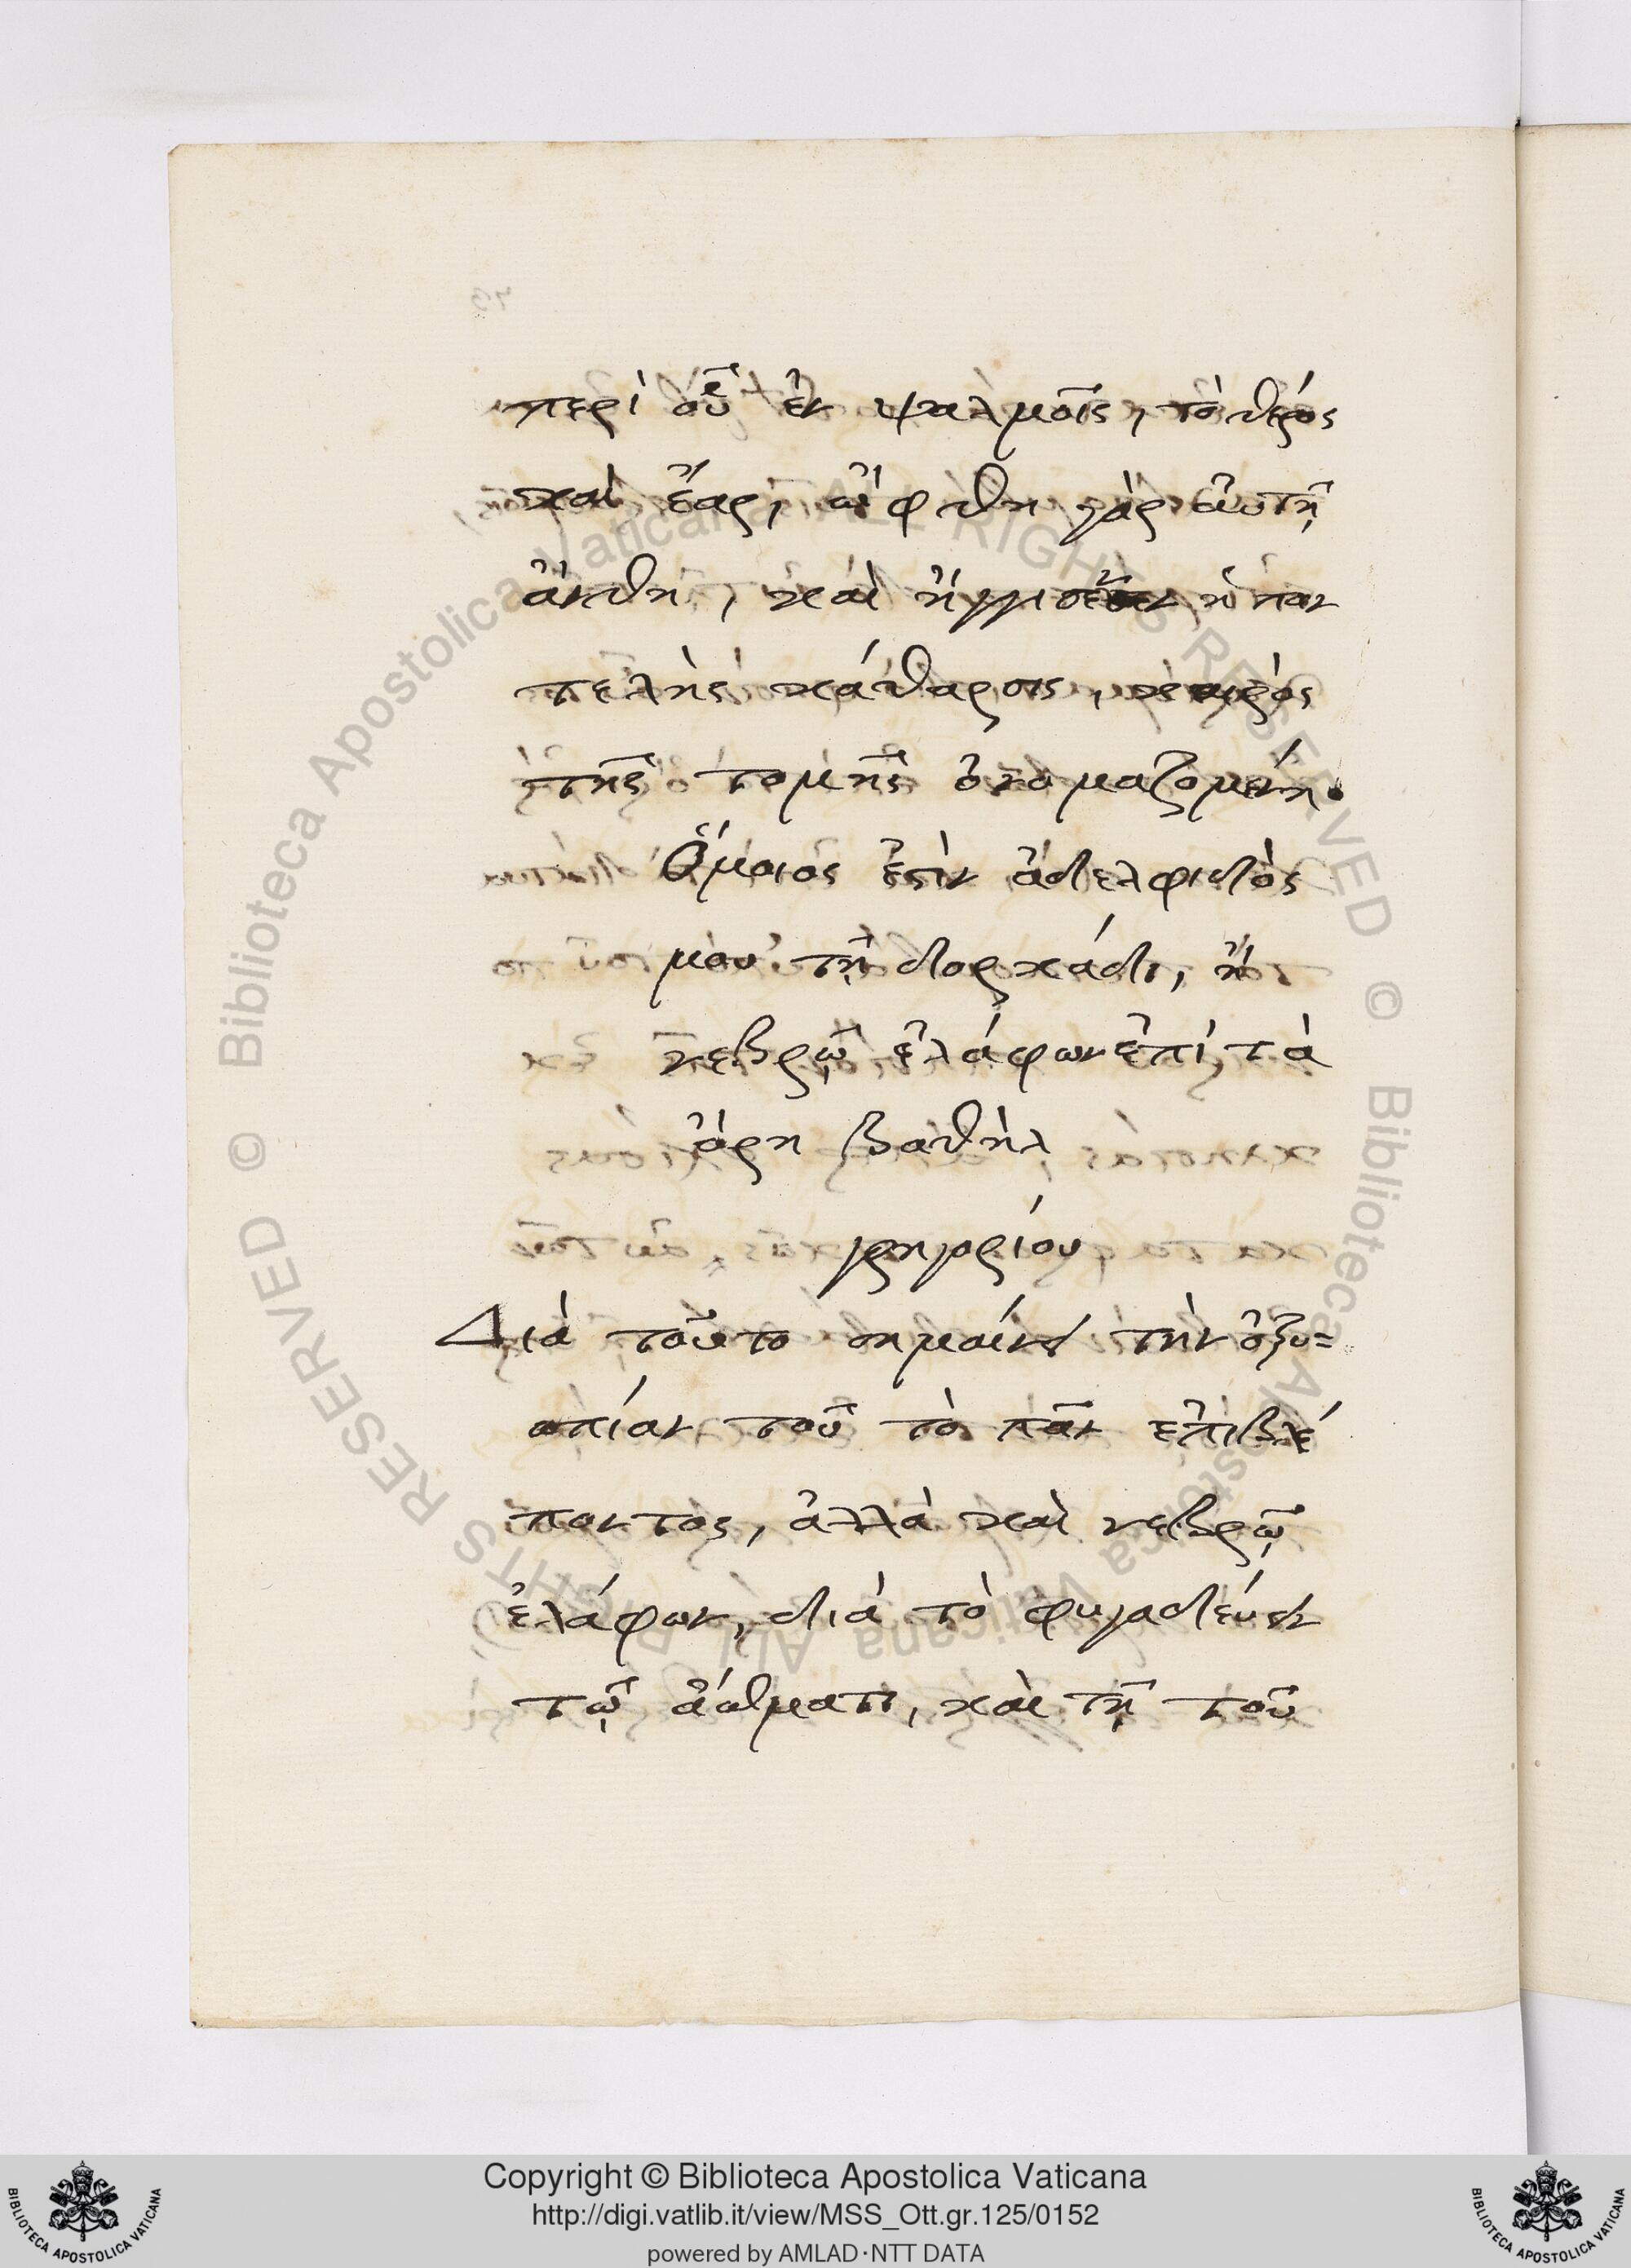 περὶ οὗ ἐν ψαλμοῖς, τὸ θέρος
καὶ ἔαρ, ὤφθη γὰρ αὐτῇ
ἄνθη, καὶ ἤγγισεν ἡ παν
τελὴς κάθαρσις, καιρὸς
τῆς τομῆς ὀνομαζομένη.
Ὅμοιός ἐστιν ἀδελφιδὸς
μου τῇ δορκάδι, ἢ
νεβρῷ ἐλάφων ἐπὶ τὰ
ὄρη βαιθὴλ
γρηγορίου
Διὰ τοῦτο σημαίνει τὴν ὀξυ=
ωπίαν τοῦ τὸ πᾶν ἐπιβλέ
ποντος, ἀλλὰ καὶ νεβρῷ
ἐλάφων, διὰ τὸ φυγαδεύειν
τῷ ἄσθματι, καὶ τῇ τοῦ
BIBLIOTECA APOSTOLICA VATICANA
Copyright © Biblioteca Apostolica Vaticana
http://digi.vatlib.it/view/MSS_Ott.gr.125/0152
powered by AMLAD·NTT DATA
BIBLIOTECA APOSTOLICA VATICANA
© Biblioteca Apostolica Vaticana ALL RIGHTS RESERVED © Biblioteca Apostolica Vaticana ALL RIGHTS RESERVED